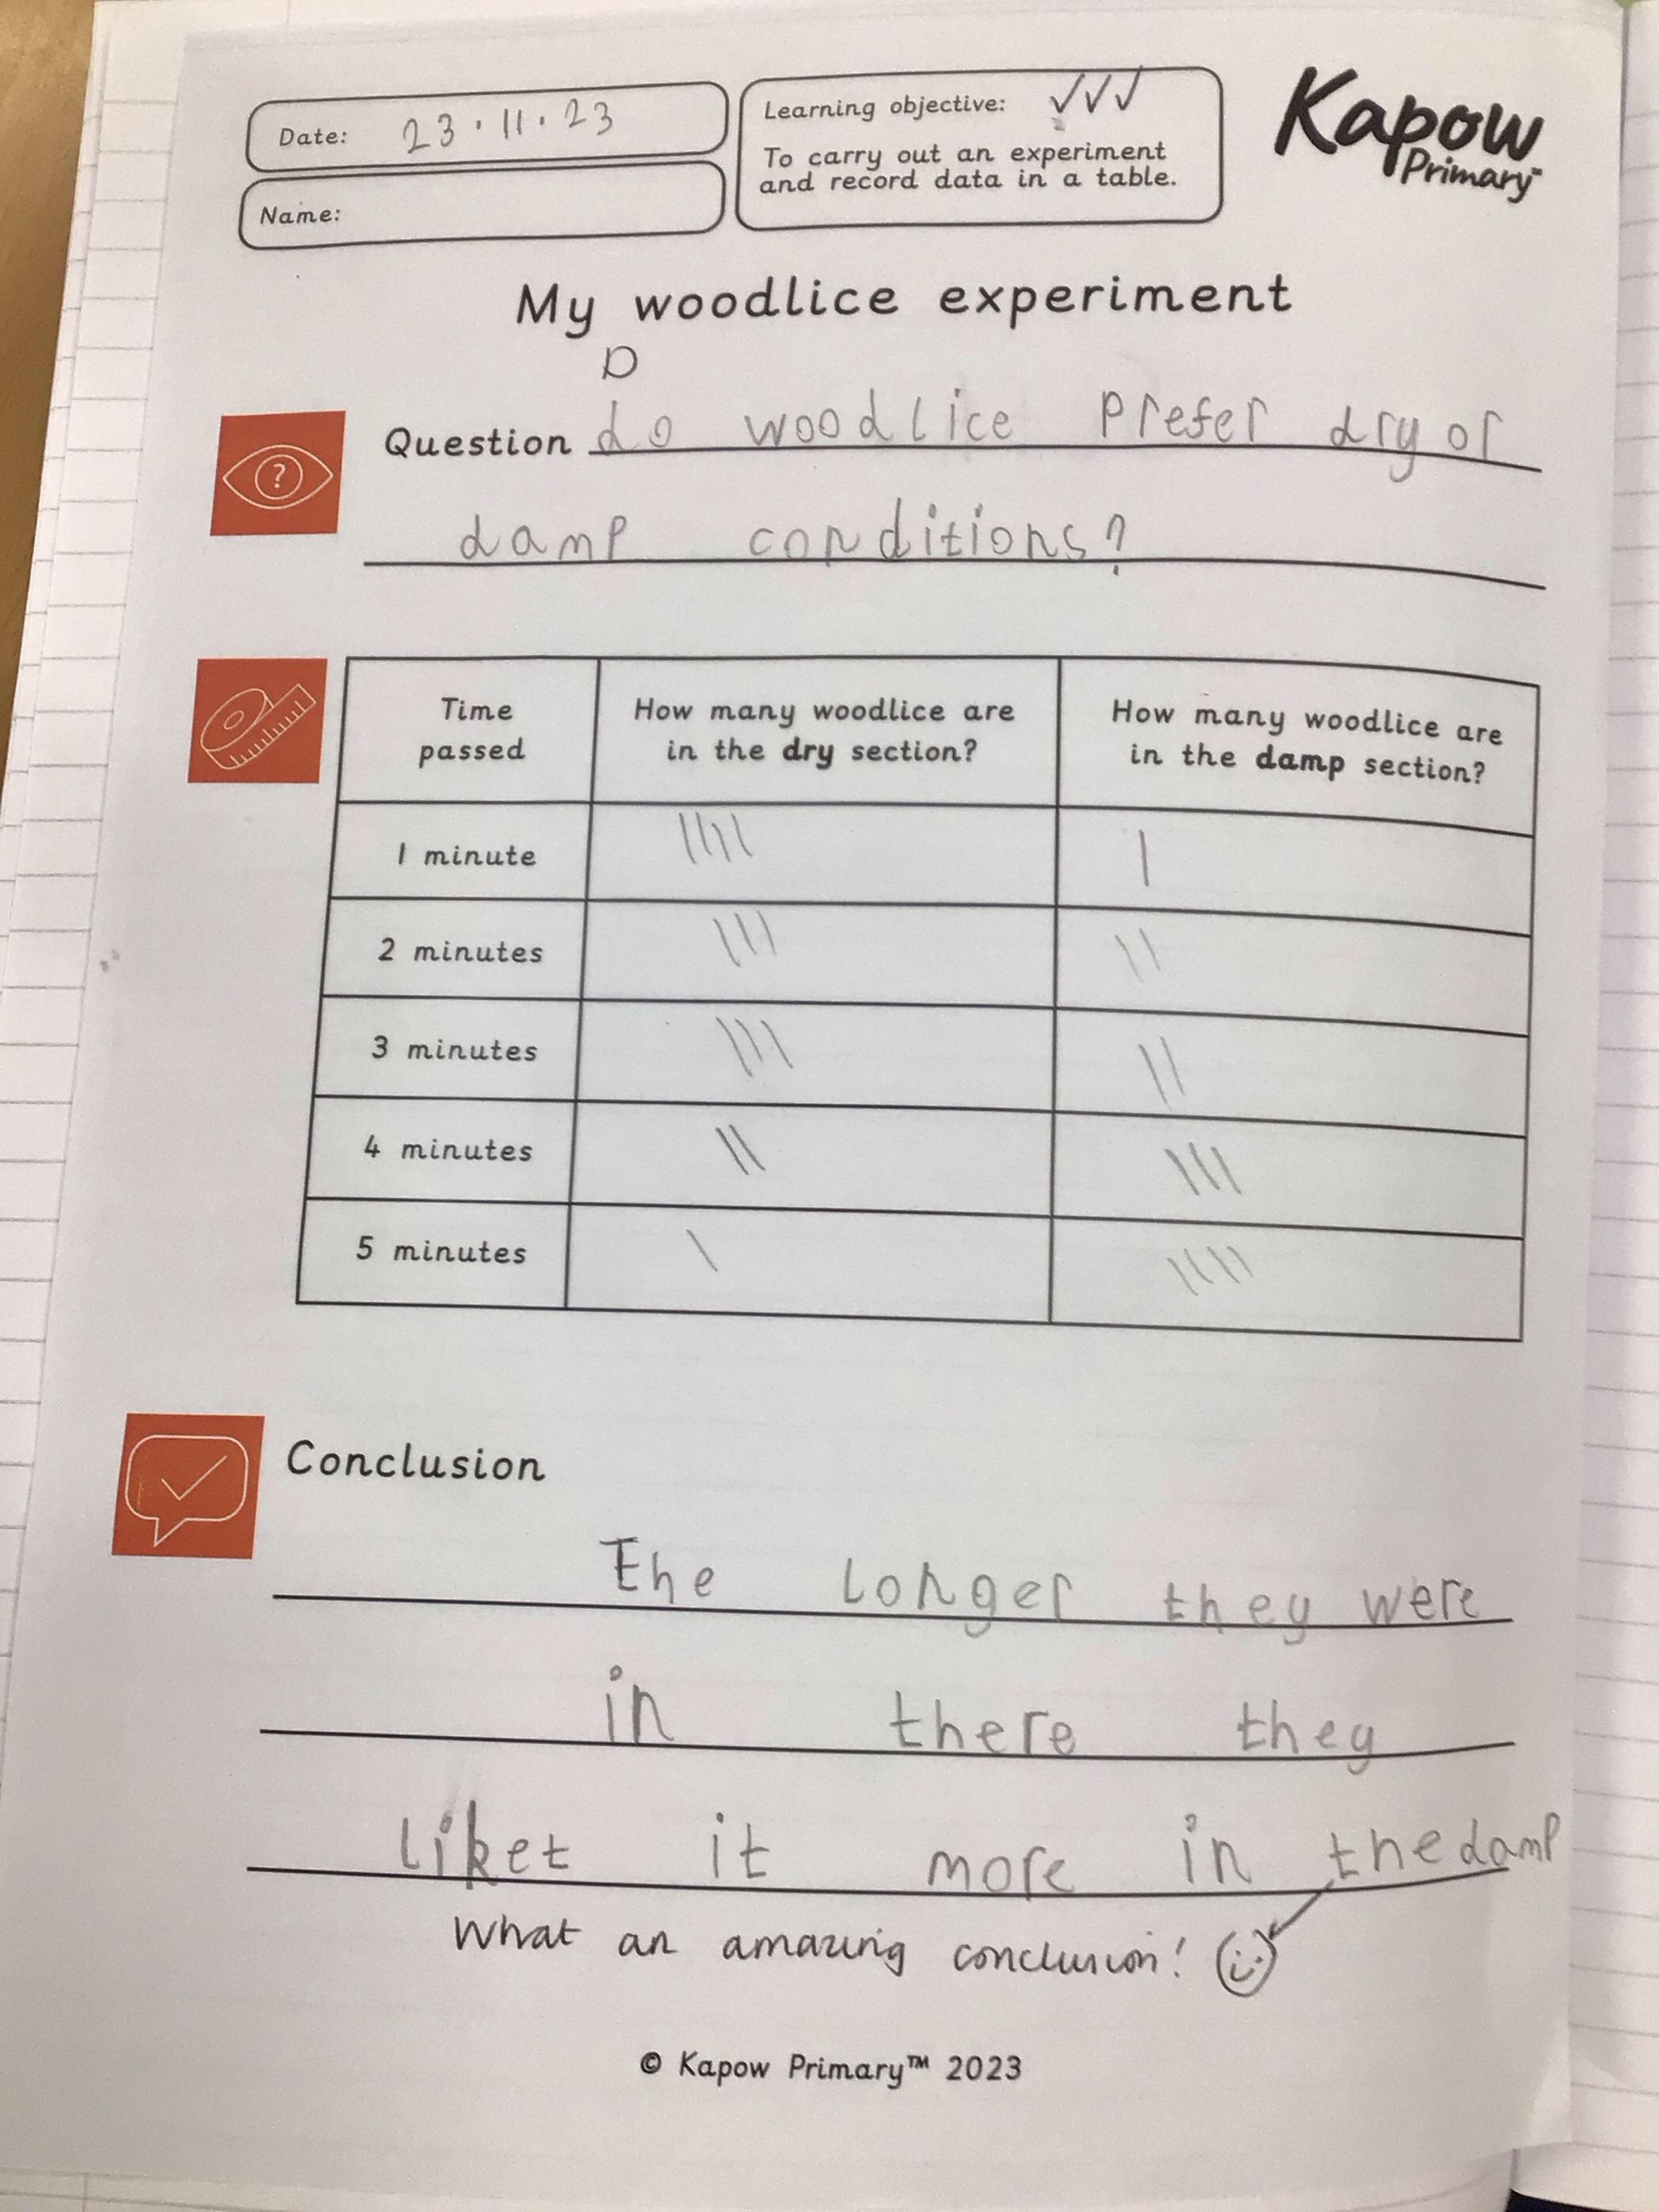 Date: 23.11.23
Name:
Learning objective: ✓✓✓
To carry out an experiment
and record data in a table.
Kapow
Primary™
My woodlice experiment
D
Question do woodlice prefer dry or
damp conditions?
?
Time passed
How many woodlice are in the dry section?
How many woodlice are in the damp section?
1 minute |||| |
2 minutes ||| ||
3 minutes ||| ||
4 minutes || |||
5 minutes | ||||
Conclusion
The longer they were
in there they
liket it more in the damp
What an amazing conclusion!
© Kapow Primary™ 2023